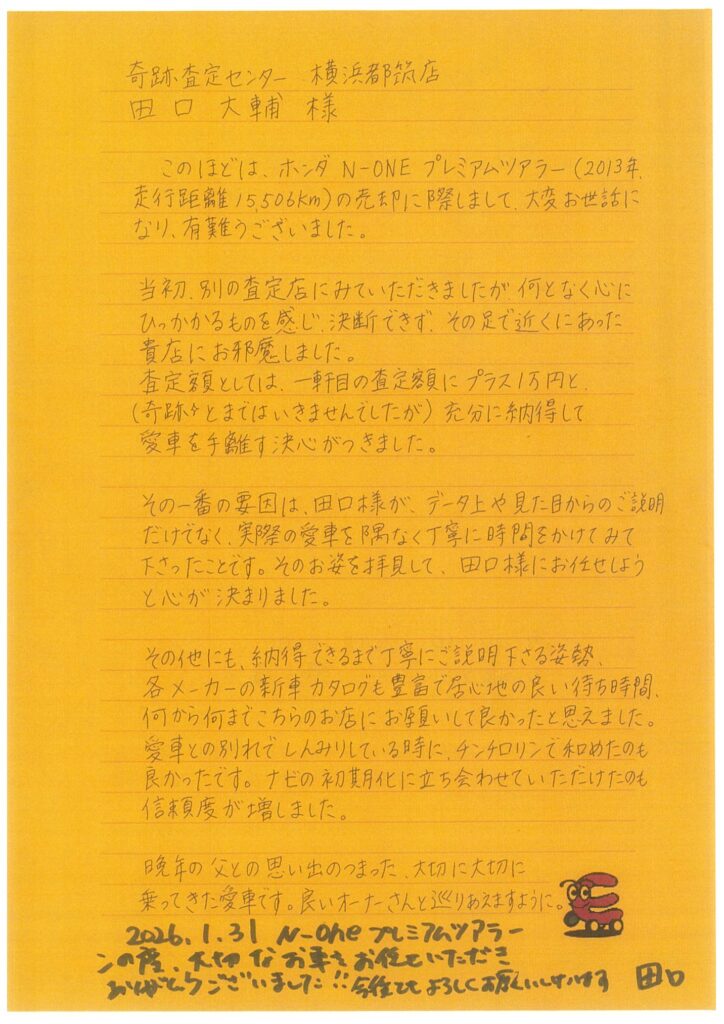 奇跡査定センター 横浜都筑店
田口 大輔 様
このほどは、ホンダ N-ONE プレミアムツアラー(2013年、
走行距離15,506km)の売却に際しまして、大変お世話に
なり、有難うございました。
当初、別の査定店にみていただきましたが、何となく心に
ひっかかるものを感じ、決断できず、その足で近くにあった
貴店にお邪魔しました。
査定額としては、一軒目の査定額にプラス1万円と、
(奇跡々とまではいきませんでしたが)充分に納得して
愛車を手離す決心がつきました。
その一番の要因は、田口様が、データ上や見た目からのご説明
だけでなく、実際の愛車を隅なく丁寧に時間をかけてみて
下さったことです。そのお姿を拝見して、田口様にお任せしよう
と心が決まりました。
その他にも、納得できるまで丁寧にご説明下さる姿勢、
各メーカーの新車カタログも豊富で居心地の良い待ち時間、
何から何までこちらのお店にお願いして良かったと思えました。
愛車との別れでしんみりしている時に、チンチロリンで和めたのも
良かったです。ナビの初期化に立ち会わせていただけたのも
信頼度が増しました。
晩年の父との思い出のつまった、大切に大切に
乗ってきた愛車です。良いオーナーさんと巡りあえますように。
2026.1.31 N-One プレミアムツアラー
この度、大切なお車をお任せいただき
ありがとうございました!!今後ともよろしくお願いいたします 田口